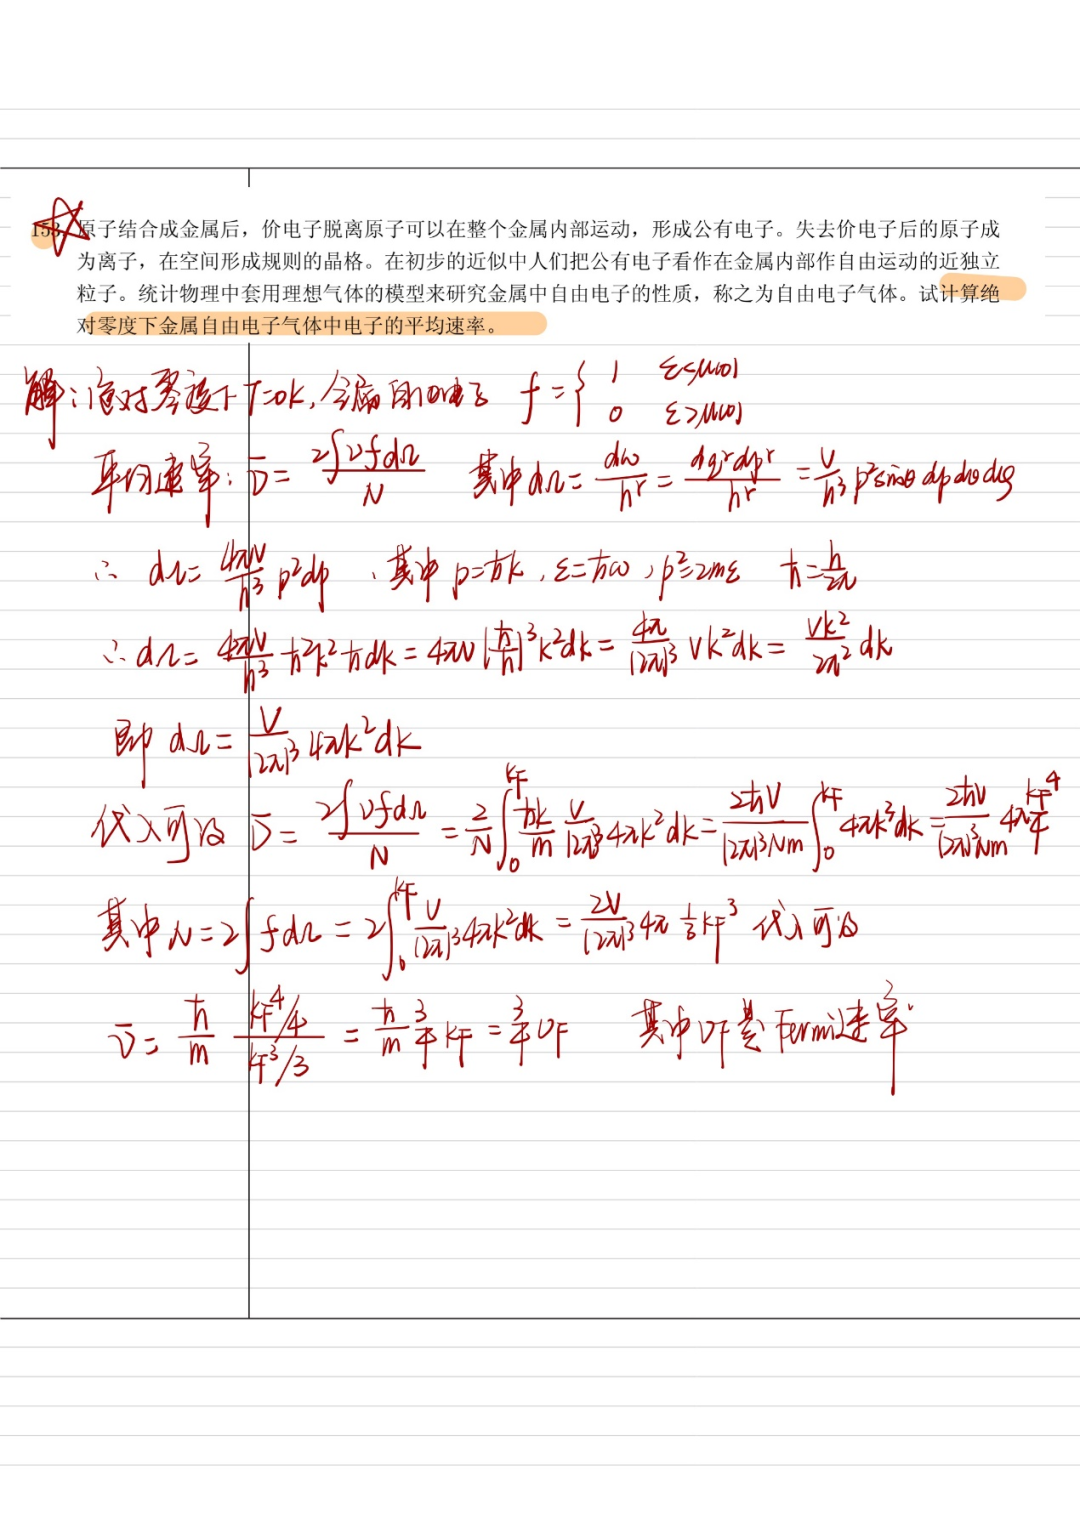 153 原子结合成金属后，价电子脱离原子可以在整个金属内部运动，形成公有电子。失去价电子后的原子成
为离子，在空间形成规则的晶格。在初步的近似中人们把公有电子看作在金属内部作自由运动的近独立
粒子。统计物理中套用理想气体的模型来研究金属中自由电子的性质，称之为自由电子气体。试计算绝
对零度下金属自由电子气体中电子的平均速率。
解：绝对零度下 T=0K, 金属自由电子 f = { 1 ε≤μ(0) 0 ε>μ(0)
平均速率：v̄ = 2∫vfdΩ / N 其中 dΩ = dω/h^r = dq^r dp^r / h^r = V/h³ p² sinθ dp dθ dφ
∴ dΩ = 4πV/h³ p²dp ，其中 p=ħk , ε=ħω , p²=2mε ħ = h/2π
∴ dΩ = 4πV/h³ ħ²k² ħdk = 4πV (ħ/h)³ k²dk = 4π/(2π)³ Vk²dk = Vk²/2π² dk
即 dΩ = V/(2π)³ 4πk²dk
代入可得 v̄ = 2∫vfdΩ / N = 2/N ∫₀^kF ħk/m V/(2π)³ 4πk²dk = 2ħV/((2π)³Nm) ∫₀^kF 4πk³dk = 2ħV/((2π)³Nm) 4π kF⁴/4
其中 N = 2∫fdΩ = 2∫₀^kF V/(2π)³ 4πk²dk = 2V/(2π)³ 4π 1/3 kF³ 代入可得
v̄ = ħ/m (kF⁴/4)/(kF³/3) = ħ/m 3/4 kF = 3/4 vF 其中 vF 是 Fermi速率.